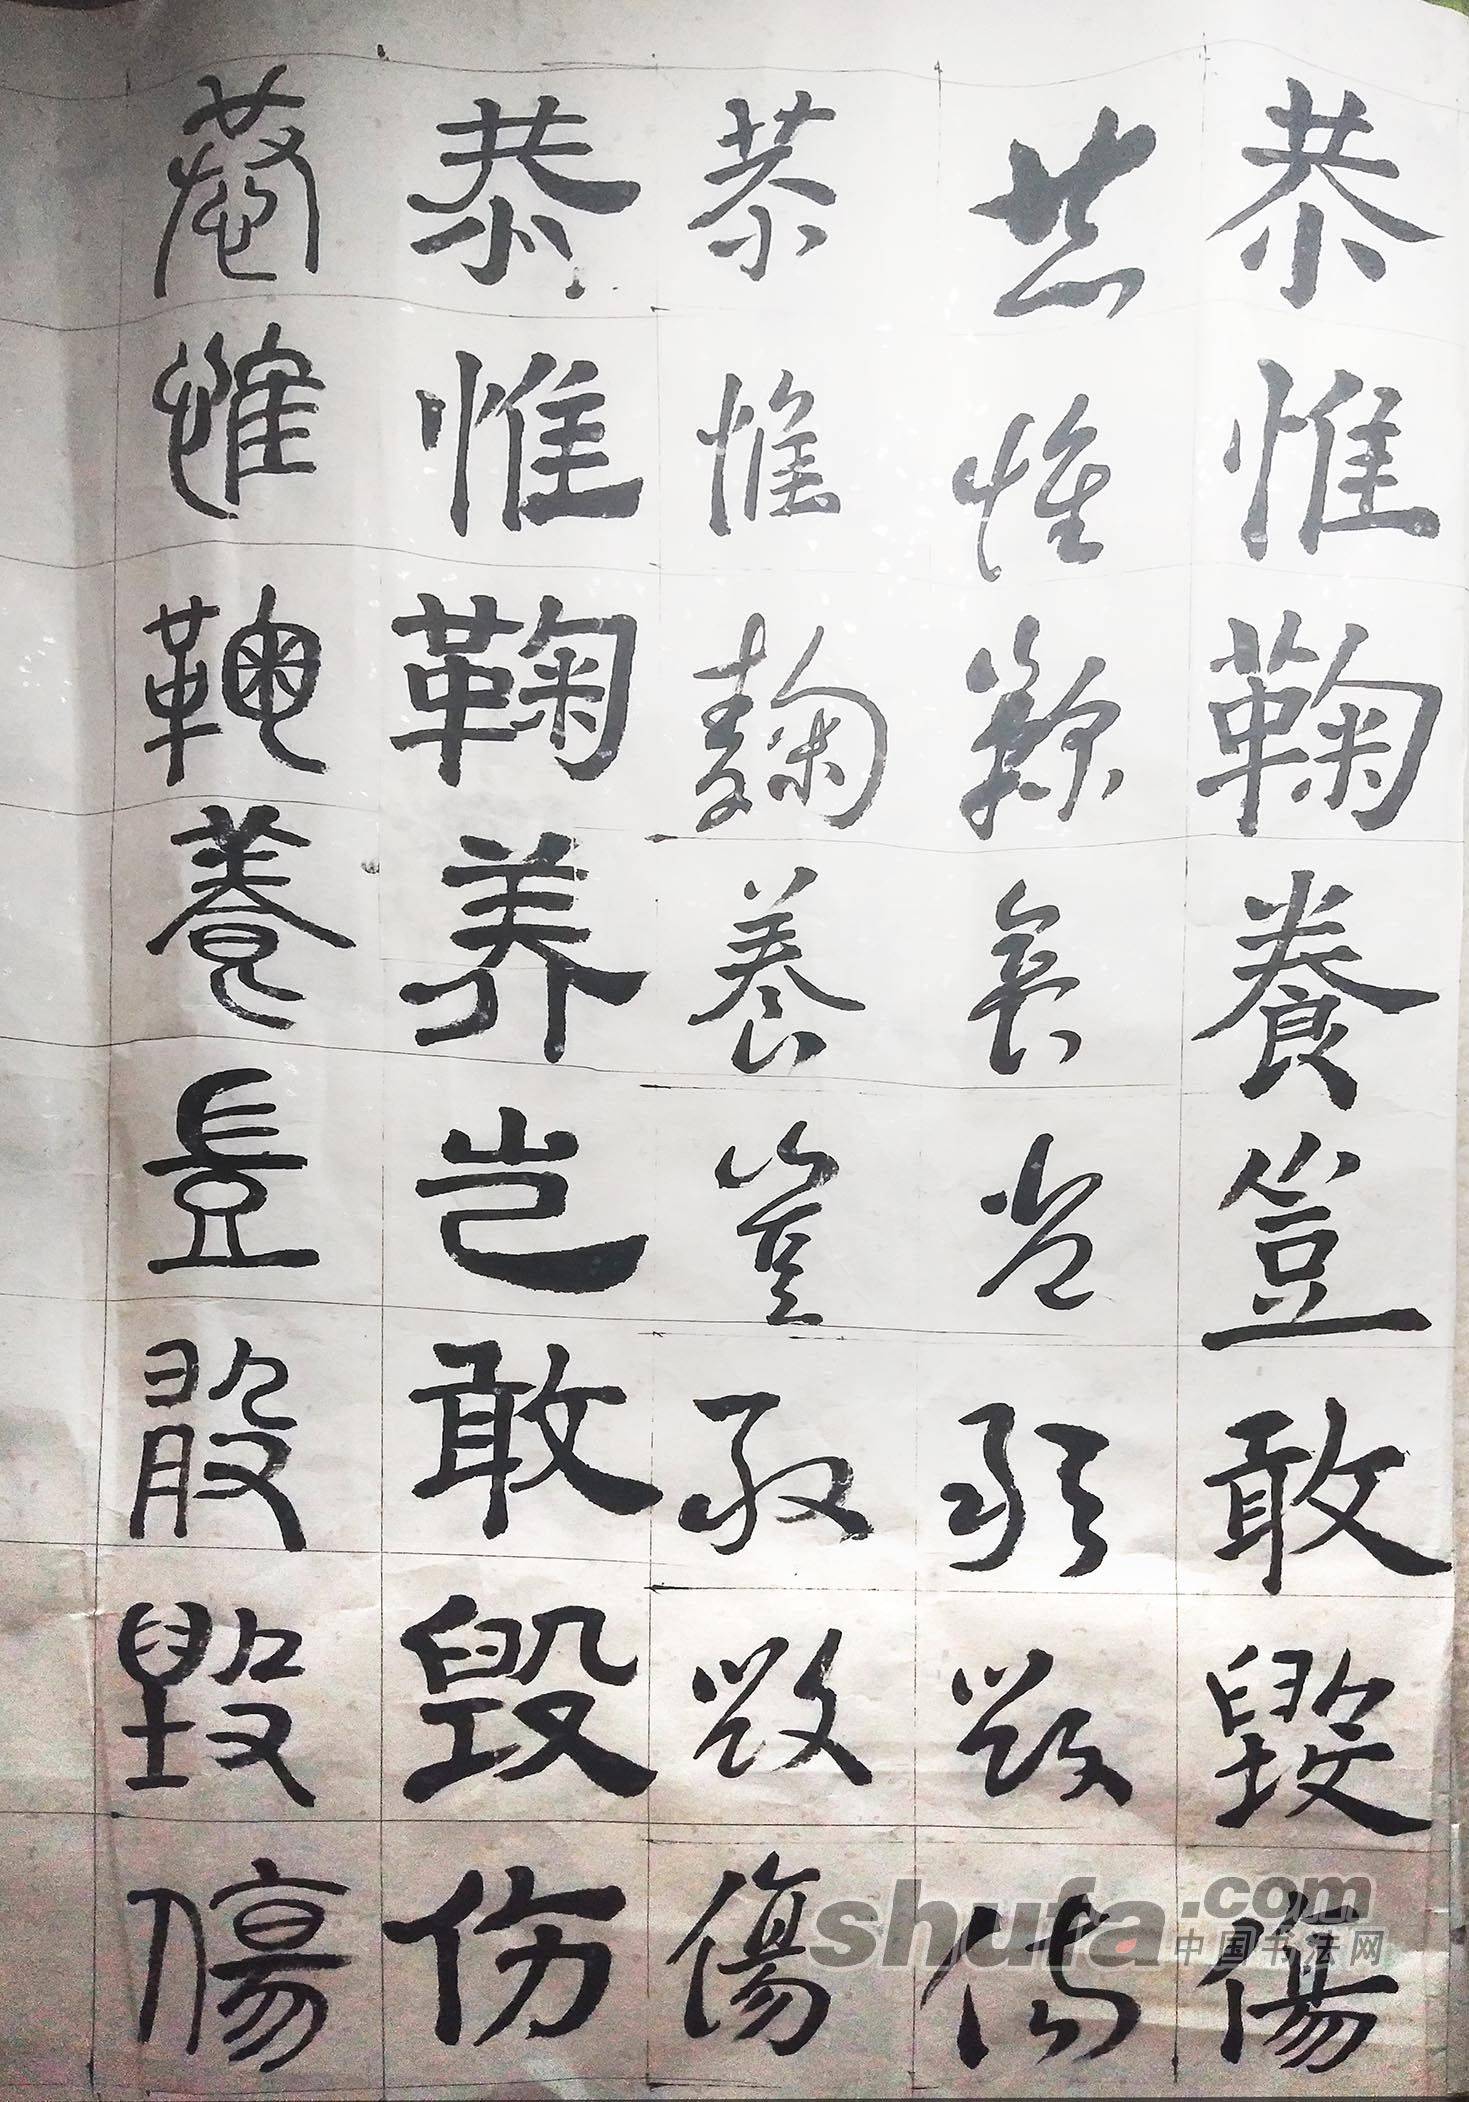 恭惟鞠養豈敢毀傷
恭惟鞠養豈敢毀傷
恭惟鞠養豈敢毀傷
恭惟鞠养岂敢毁伤
恭惟鞠養豈敢毀傷
shufa.com
中国书法网